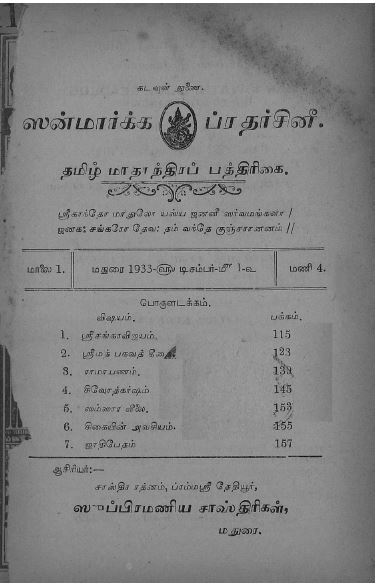 கடவுள் துணை.
ஸன்மார்க்க ப்ரதர்சினீ.
தமிழ் மாதாந்திரப் பத்திரிகை.
ஸ்ரீகாந்தோ மாதுலோ யஸ்ய ஜனனீ ஸர்வமங்களா /
ஜனக: சங்கரோ தேவ: தம் வந்தே குஞ்சரானனம் //
மாலை 1. மதுரை 1933-௵ டிசம்பர்-௴ 1-உ மணி 4.
பொருளடக்கம்.
விஷயம். பக்கம்.
1. ஸ்ரீசங்கரவிஜயம். 115
2. ஸ்ரீமத் பகவத் கீதை. 123
3. ராமாயணம். 139
4. சிவோத்கர்ஷம் 145
5. ஸம்ஸார லீலை. 153
6. சிகையின் அவசியம். 155
7. ஜாதிபேதம் 157
ஆசிரியர்:—
சாஸ்திர ரத்னம், ப்ரம்மஸ்ரீ தேதியூர்,
ஸுப்பிரமணிய சாஸ்திரிகள்,
மதுரை.